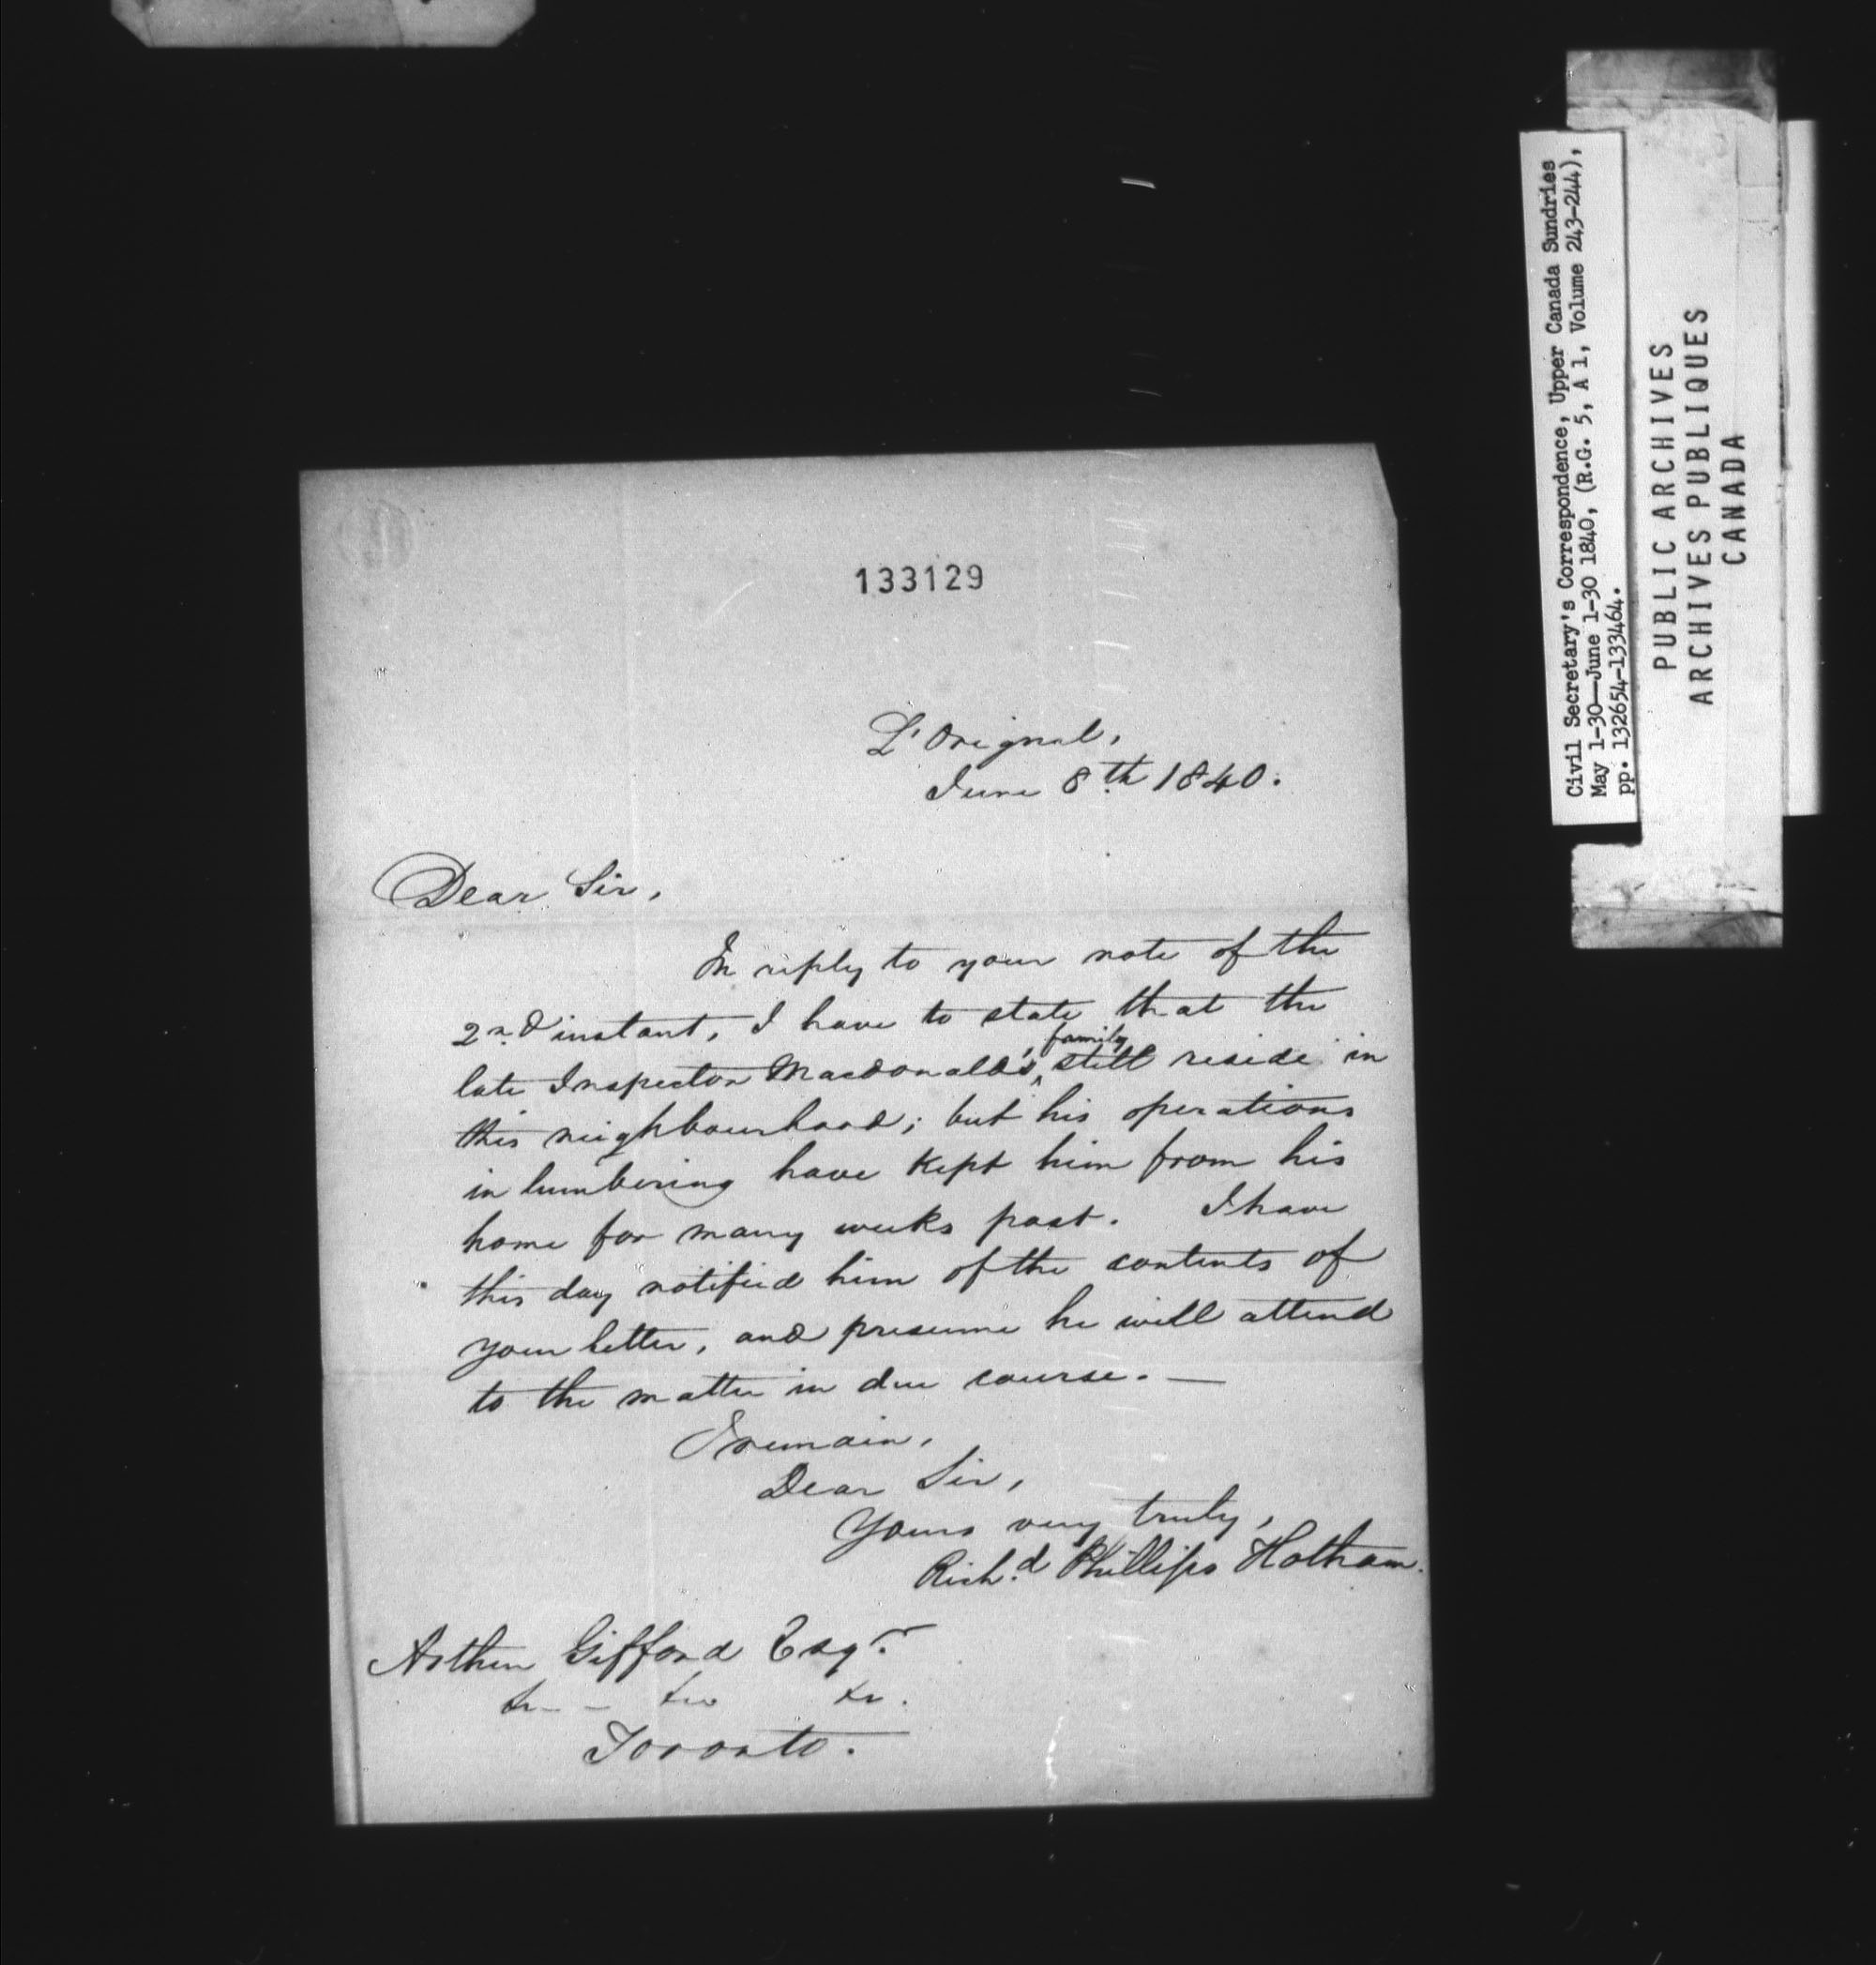 133129
L'Orignal,
June 8th 1840.
Dear Sir,
In reply to your note of the
2nd instant, I have to state that the
late Inspector Macdonald's, family still reside in
this neighbourhood; but his operations
in lumbering have kept him from his
home for many weeks past. I have
this day notified him of the contents of
your letter, and presume he will attend
to the matter in due course. —
I remain,
Dear Sir,
Yours very truly,
Rich.d Phillips Hotham.
Arthur Gifford Esqr.
Toronto.
Civil Secretary's Correspondence, Upper Canada Sundries
May 1-30—June 1-30 1840, (R.G. 5, A 1, Volume 243-244),
pp. 132654-133464.
PUBLIC ARCHIVES
ARCHIVES PUBLIQUES
CANADA